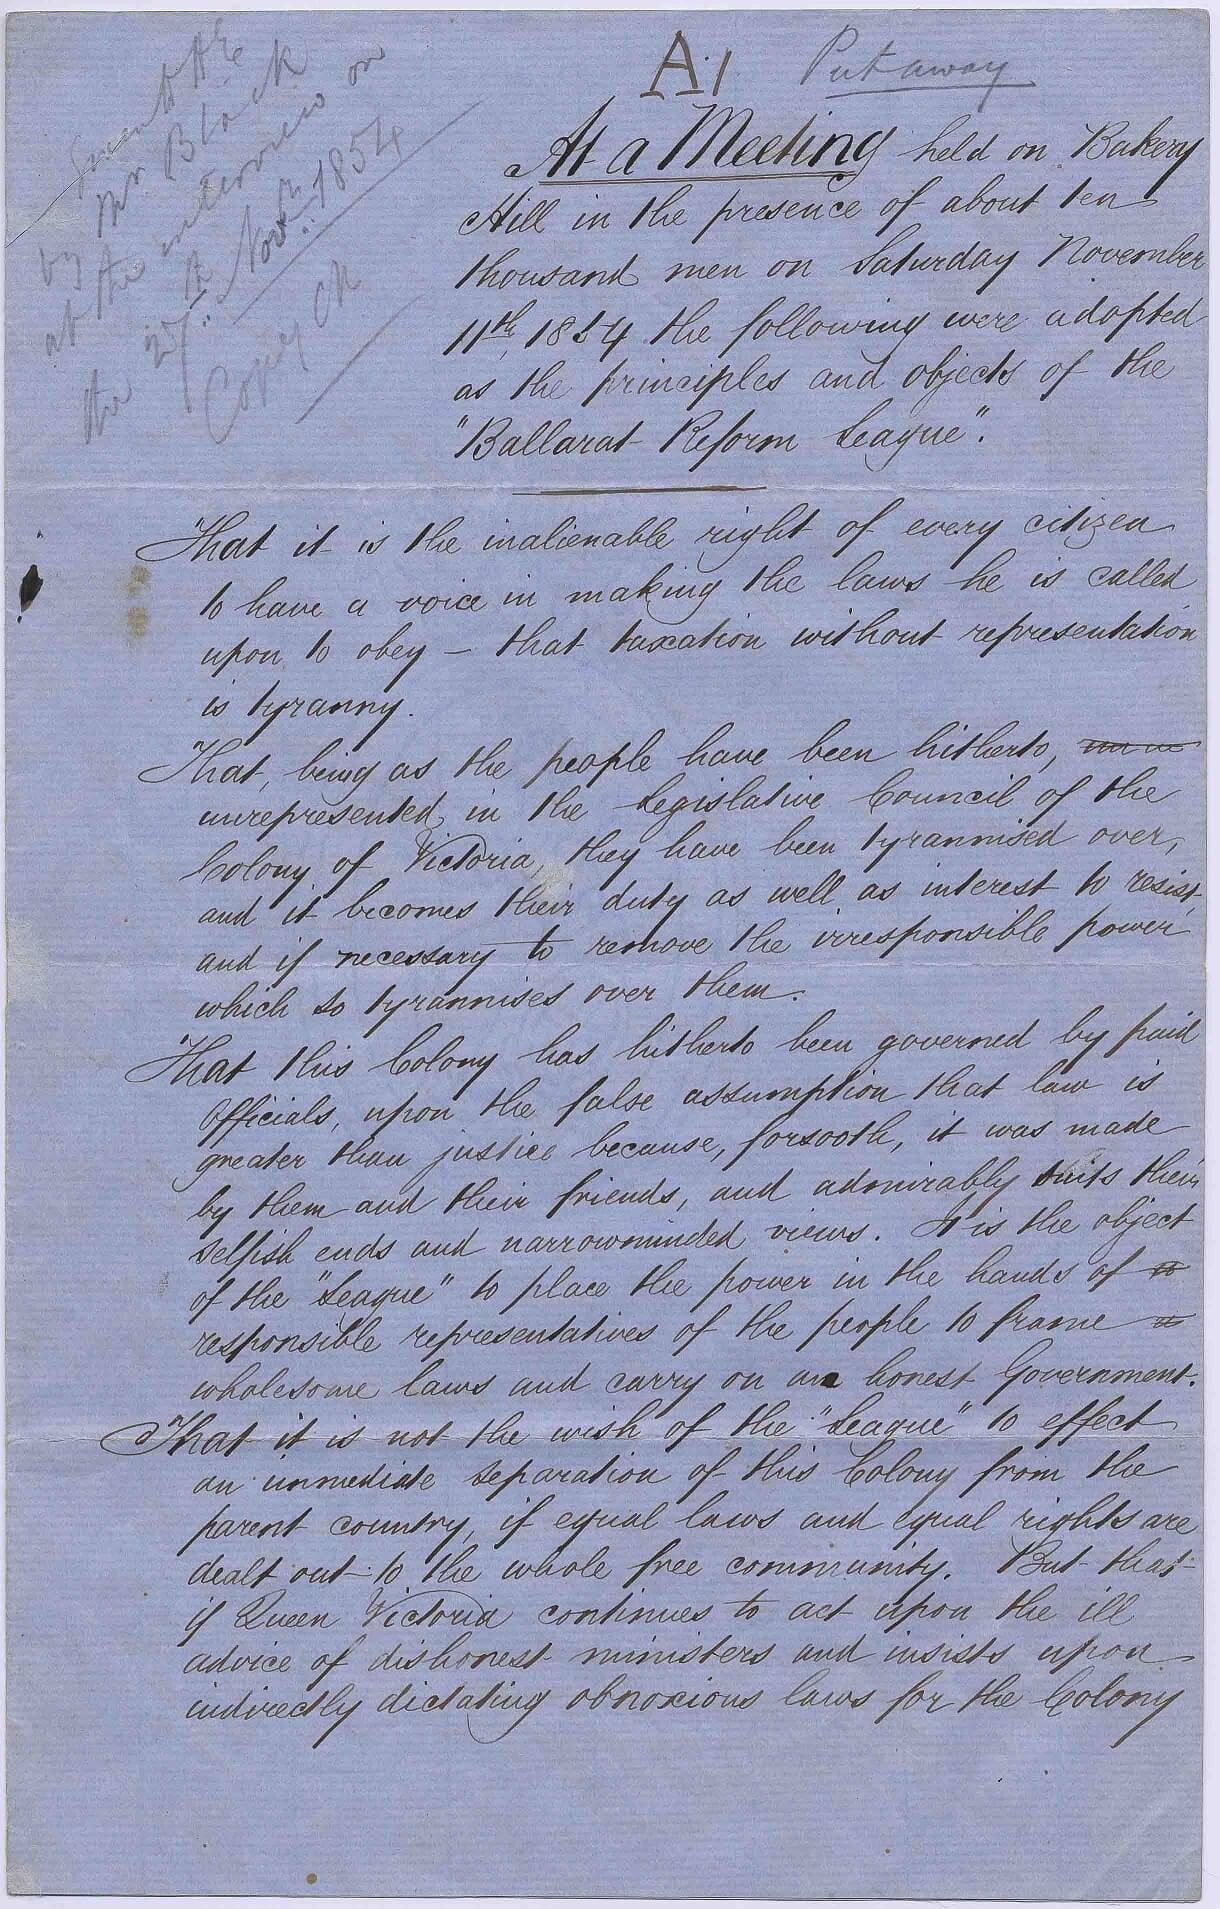 A.1
Put away
by Mr Black
at the interview on
the 27th Novr. 1854
Copy
At a Meeting held on Bakery
Hill in the presence of about ten
thousand men on Saturday November
11th, 1854 the following were adopted
as the principles and objects of the
"Ballarat Reform League".
That it is the inalienable right of every citizen
to have a voice in making the laws he is called
upon to obey – that taxation without representation
is tyranny.
That, being as the people have been hitherto,
unrepresented in the Legislative Council of the
Colony of Victoria, they have been tyrannised over,
and it becomes their duty as well as interest to resist,
and if necessary to remove the irresponsible power
which so tyrannises over them.
That this Colony has hitherto been governed by paid
Officials, upon the false assumption that law is
greater than justice because, forsooth, it was made
by them and their friends, and admirably suits their
selfish ends and narrowminded views. It is the object
of the "League" to place the power in the hands of
responsible representatives of the people to frame
wholesome laws and carry on an honest Government.
That it is not the wish of the "League" to effect
an immediate separation of this Colony from the
parent country, if equal laws and equal rights are
dealt out to the whole free community. But that
if Queen Victoria continues to act upon the ill
advice of dishonest ministers and insists upon
indirectly dictating obnoxious laws for the Colony